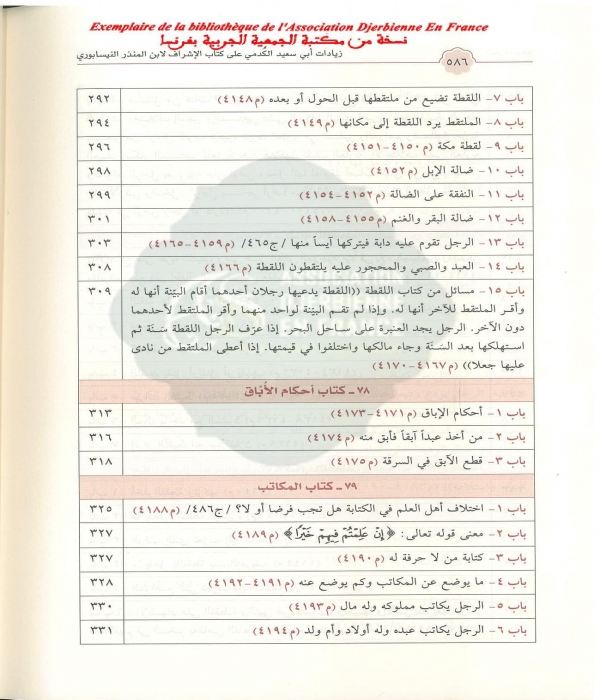 Exemplaire de la bibliothèque de l'Association Djerbienne En France
نسخة من مكتبة الجمعية الجربية بفرنسا
٥٨٦
زيادات أبي سعيد الكدمي على كتاب الإشراف لابن المنذر النيسابوري
باب ٧- اللقطة تضيع من ملتقطها قبل الحول أو بعده (م٤١٤٨) ٢٩٢
باب ٨- الملتقط يرد اللقطة إلى مكانها (م٤١٤٩) ٢٩٤
باب ٩- لقطة مكة (م٤١٥٠-٤١٥١) ٢٩٦
باب ١٠- ضالة الإبل (م٤١٥٢) ٢٩٨
باب ١١- النفقة على الضالة (م٤١٥٢-٤١٥٤) ٢٩٩
باب ١٢- ضالة البقر والغنم (م٤١٥٥-٤١٥٨) ٣٠١
باب ١٣- الرجل تقوم عليه دابة فيتركها آيساً منها /ج٤٦٥/ (م٤١٥٩-٤١٦٥) ٣٠٣
باب ١٤- العبد والصبي والمحجور عليه يلتقطون اللقطة (م٤١٦٦) ٣٠٨
باب ١٥- مسائل من كتاب اللقطة ((اللقطة يدعيها رجلان أحدهما أقام البيّنة أنها له ٣٠٩
وأقر الملتقط للآخر أنها له. وإذا لم تقم البيّنة لواحد منهما وأقر الملتقط لأحدهما
دون الآخر. الرجل يجد العنبرة على ساحل البحر. إذا عرّف الرجل اللقطة سَنَة ثم
استهلكها بعد السَّنَة وجاء مالكها واختلفوا في قيمتها. إذا أعطى الملتقط من نادى
عليها جعلا)) (م٤١٦٧-٤١٧٠)
٧٨ - كتاب أحكام الأُبَاق
باب ١- أحكام الإباق (م٤١٧١-٤١٧٣) ٣١٣
باب ٢- من أخذ عبداً آبقاً فأبق منه (م٤١٧٤) ٣١٦
باب ٣- قطع الآبق في السرقة (م٤١٧٥) ٣١٨
٧٩ - كتاب المكاتب
باب ١- اختلاف أهل العلم في الكتابة هل تجب فرضا أو لا؟ /ج٤٨٦/ (م٤١٨٨) ٣٢٥
باب ٢- معنى قوله تعالى: ﴿إِنْ عَلِمْتُمْ فِيهِمْ خَيْرًا﴾ (م٤١٨٩) ٣٢٧
باب ٣- كتابة من لا حرفة له (م٤١٩٠) ٣٢٧
باب ٤- ما يوضع عن المكاتب وكم يوضع عنه (م٤١٩١-٤١٩٢) ٣٢٨
باب ٥- الرجل يكاتب مملوكه وله مال (م٤١٩٣) ٣٣٠
باب ٦- الرجل يكاتب عبده وله أولاد وأم ولد (م٤١٩٤) ٣٣١